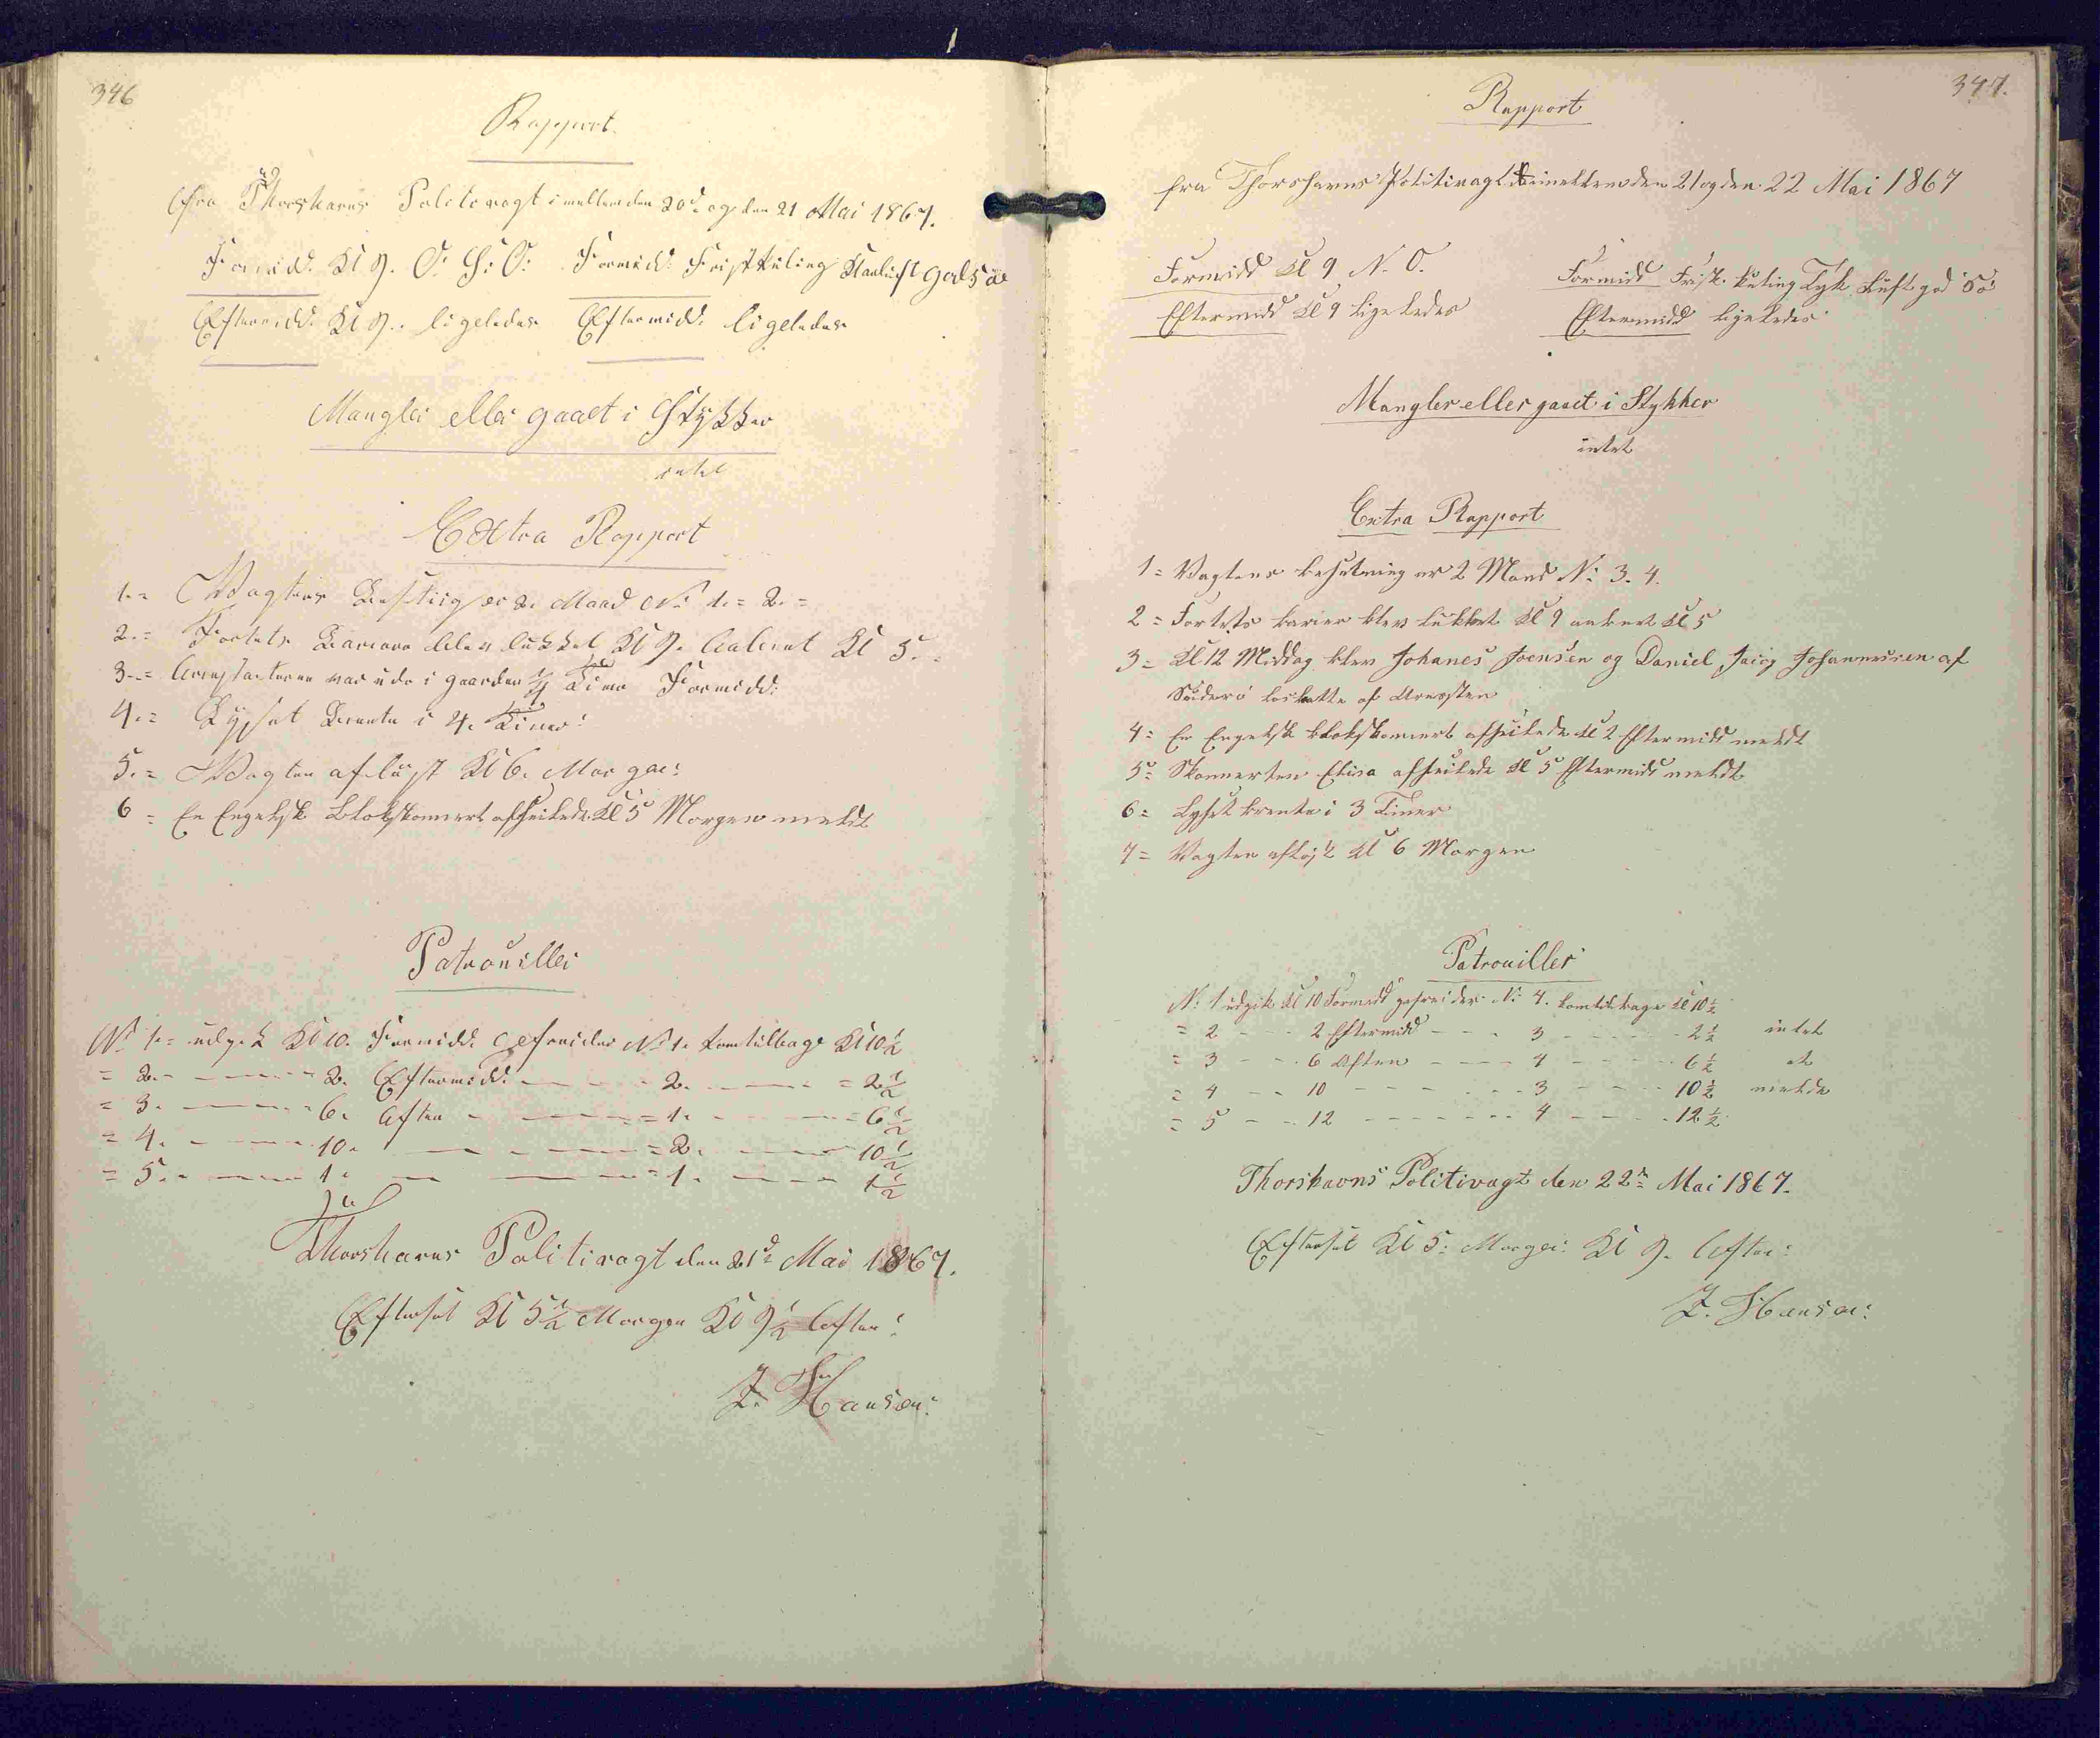 346
Rapport
fra Thorshavns Politivagt imellem den 20de og den 21 Mai 1867.
Formidd. Kl 9. O. S: O: Formidd: Frisk Kuling Klarluft god Sö
Eftermidd. Kl 9. ligeledes Eftermidd. ligeledes
Mangler eller gaaet i Stykker
intet
Extra Rapport
1.= Vagtens Besetning er 2. Mand No 1. = 2. =
2.= Fortets Bariere blev lukket Kl 9. aabnet Kl 5.
3.= Arrestanterne var ude i gaarden Time Formidd:
4.= Lyset brente i 4. Timer
5.= Vagten aflöst Kl 6. Morgen
6 = En Engelsk Slotskonnert afseilede Kl 5 Morgen meldt
Patrouiller
No 1.= udgik Kl 10. Formidd. gefreider No 1. kom tilbage Kl 10 1/2
= 2. - - - 2. Eftermidd. - - - 2. - - - = 2 1/2
= 3. - - - 6. Aften - - - = 1. - - - 6 1/2
= 4. - - - 10. - - - = 2. - - - 10 1/2
= 5. - - - 1. - - - = 1. - - - 1 1/2
Thorshavns Politivagt den 21de Mai 1867.
Efterset Kl 5 1/2 Morgen Kl 9 1/2 Aften
J. Hansen
347.
Rapport
fra Thorshavns Politivagt imellem den 21 og den 22 Mai 1867
Formidd Kl 9 N. O. Formidd Frisk kuling Tyk Luft god Sö
Eftermidd Kl 9 ligeledes Eftermidd ligeledes
Mangler eller gaaet i Stykker
intet
Extra Rapport
1= Vagtens besetning er 2 Mand No 3. 4.
2= Fortets barier blev lukket Kl 9 aabnet Kl 5
3= Kl 12 Middag blev Johanes Joensen og Daniel Jacob Johannessen af
Süderö löslatte af Aresten
4= En Engelsk afseilede Kl 2 Eftermidd meldt
5= Skonnerten Elisa afseilede Kl 5 Eftermidd meldt
6= Lyset brente i 3 Timer
7= Vagten aflöst Kl 6 Morgen
Patrouiller
No 1 udgik Kl 10 Formidd gefreider No 4. kom tilbage Kl 10 1/2
= 2 - - - 2 Eftermidd - - - 3 - - - 2 1/2 intet
= 3 - - - 6 Aften - - - 4 - - - 6 1/2 at
= 4 - - 10 - - - 3 - - - 10 1/2 melde
= 5 - - 12 - - - 4 - - - 12 1/2
Thorshavns Politivagt den 22de Mai 1867.
Efterset Kl 5: Morgen: Kl 9. Aften:
J. Hansen: